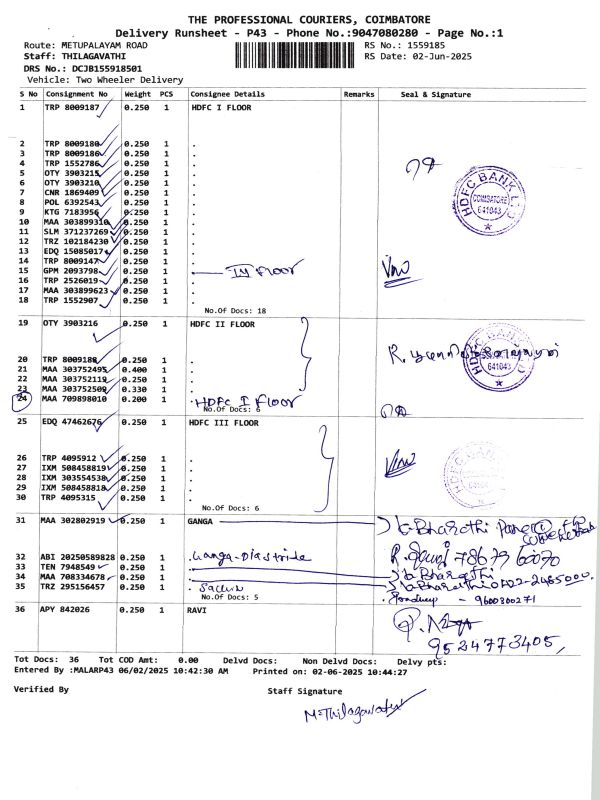 THE PROFESSIONAL COURIERS, COIMBATORE
Delivery Runsheet - P43 - Phone No.:9047080280 - Page No.:1
Route: METUPALAYAM ROAD RS No.: 1559185
Staff: THILAGAVATHI RS Date: 02-Jun-2025
DRS No.: DCJB155918501
Vehicle: Two Wheeler Delivery
S No Consignment No Weight PCS Consignee Details Remarks Seal & Signature
1 TRP 8009187 0.250 1 HDFC I FLOOR
2 TRP 8009180 0.250 1 .
3 TRP 8009186 0.250 1 .
4 TRP 1552786 0.250 1 .
5 OTY 3903215 0.250 1 .
6 OTY 3903210 0.250 1 .
7 CNR 1869409 0.250 1 .
8 POL 6392543 0.250 1 .
9 KTG 7183956 0.250 1 .
10 MAA 303899310 0.250 1 .
11 SLM 371237269 0.250 1 .
12 TRZ 102184230 0.250 1 .
13 EDQ 15085017 0.250 1 .
14 TRP 8009147 0.250 1 .
15 GPM 2093798 0.250 1 . Floor
16 TRP 2526019 0.250 1 .
17 MAA 303899623 0.250 1 .
18 TRP 1552907 0.250 1 .
No.Of Docs: 18
HDFC BANK LTD
COIMBATORE
641043
19 OTY 3903216 0.250 1 HDFC II FLOOR
20 TRP 8009188 0.250 1 .
21 MAA 303752495 0.400 1 .
22 MAA 303752119 0.250 1 .
23 MAA 303752509 0.330 1 .
24 MAA 709898010 0.200 1 . HDFC I Floor
No.Of Docs: 6
641043
25 EDQ 47462676 0.250 1 HDFC III FLOOR
26 TRP 4095912 0.250 1 .
27 IXM 508458819 0.250 1 .
28 IXM 303554538 0.250 1 .
29 IXM 508458818 0.250 1 .
30 TRP 4095315 0.250 1 .
No.Of Docs: 6
HDFC BANK
31 MAA 302802919 0.250 1 GANGA Bharathi
32 ABI 20250589828 0.250 1 .
33 TEN 7948549 0.250 1 . Bharathi
34 MAA 708334678 0.250 1 . Bharathi 0422-2465000
35 TRZ 295156457 0.250 1 . 9600300271
No.Of Docs: 5
36 APY 842026 0.250 1 RAVI
9524773405
Tot Docs: 36 Tot COD Amt: 0.00 Delvd Docs: Non Delvd Docs: Delvy pts:
Entered By :MALARP43 06/02/2025 10:42:30 AM Printed on: 02-06-2025 10:44:27
Verified By Staff Signature
M. Thilagavathi